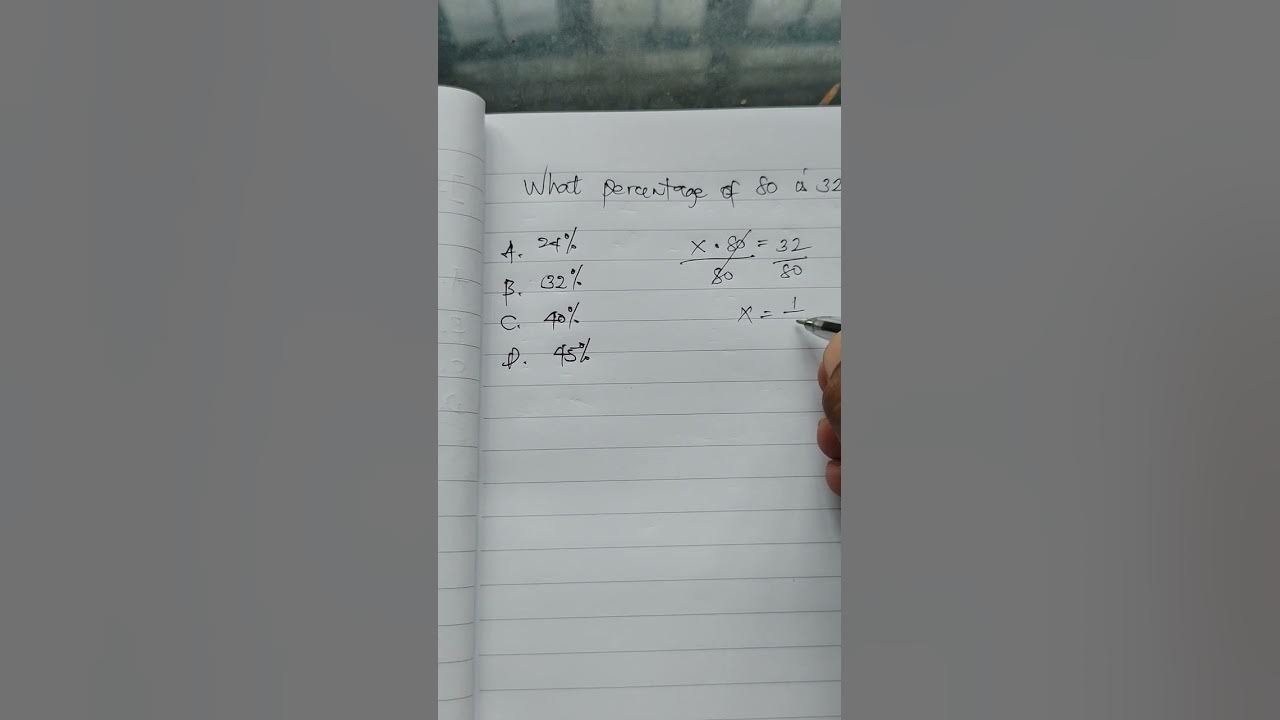 What percentage of 80 is 32
A. 24%
B. 32%
C. 40%
D. 45%
x · 80 = 32
80 80
x = 1